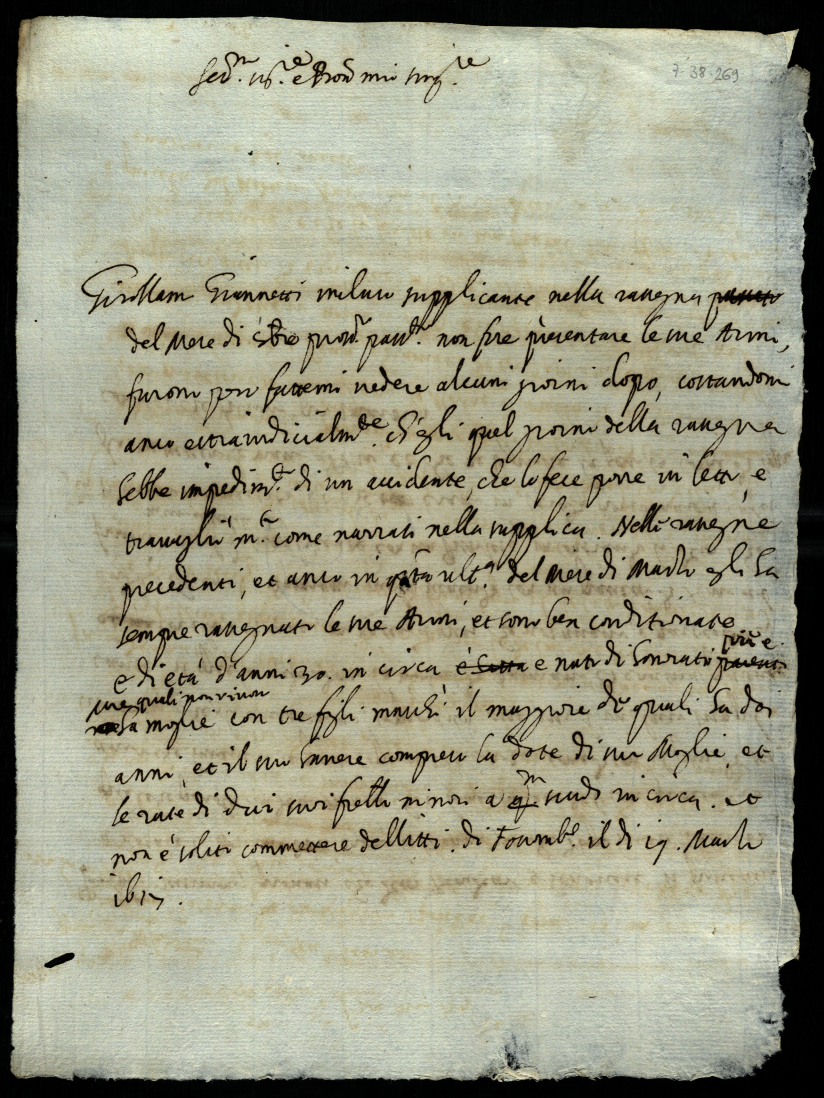 Ser.mo sig.re e Pron mio sing.re
7-38-269
Girollam Giannetti milite supplicante nella rasegna passata
del Mese di 8bre pross.o pass.to non fece presentare le sue Armi,
furono però fattemi vedere alcuni giorni dopo, costandomi
anco estraiudicialm.te ch'egli quel giorno della rasegna
hebbe impedim.to di un accidente, che lo fece porre in letto, e
travagliò m.to come narrasi nella supplica. Nelle rasegne
precedenti, et anco in q.ta ult.a del Mese di Marzo egli ha
sempre rasegnato le sue Armi, et sono ben conditionate
e di età d'anni 30. in circa è hatta e nato di honorati parenti
civi e
quali non vivon
ha moglie con tre figli maschi il maggiore de quali ha doi
anni, et il suo havere compreso la dote di sua Moglie, et
le rate di dui suoi fratelli minori a scudi in circa. et
non è solito commettere dellitti. di il di 19. Marzo